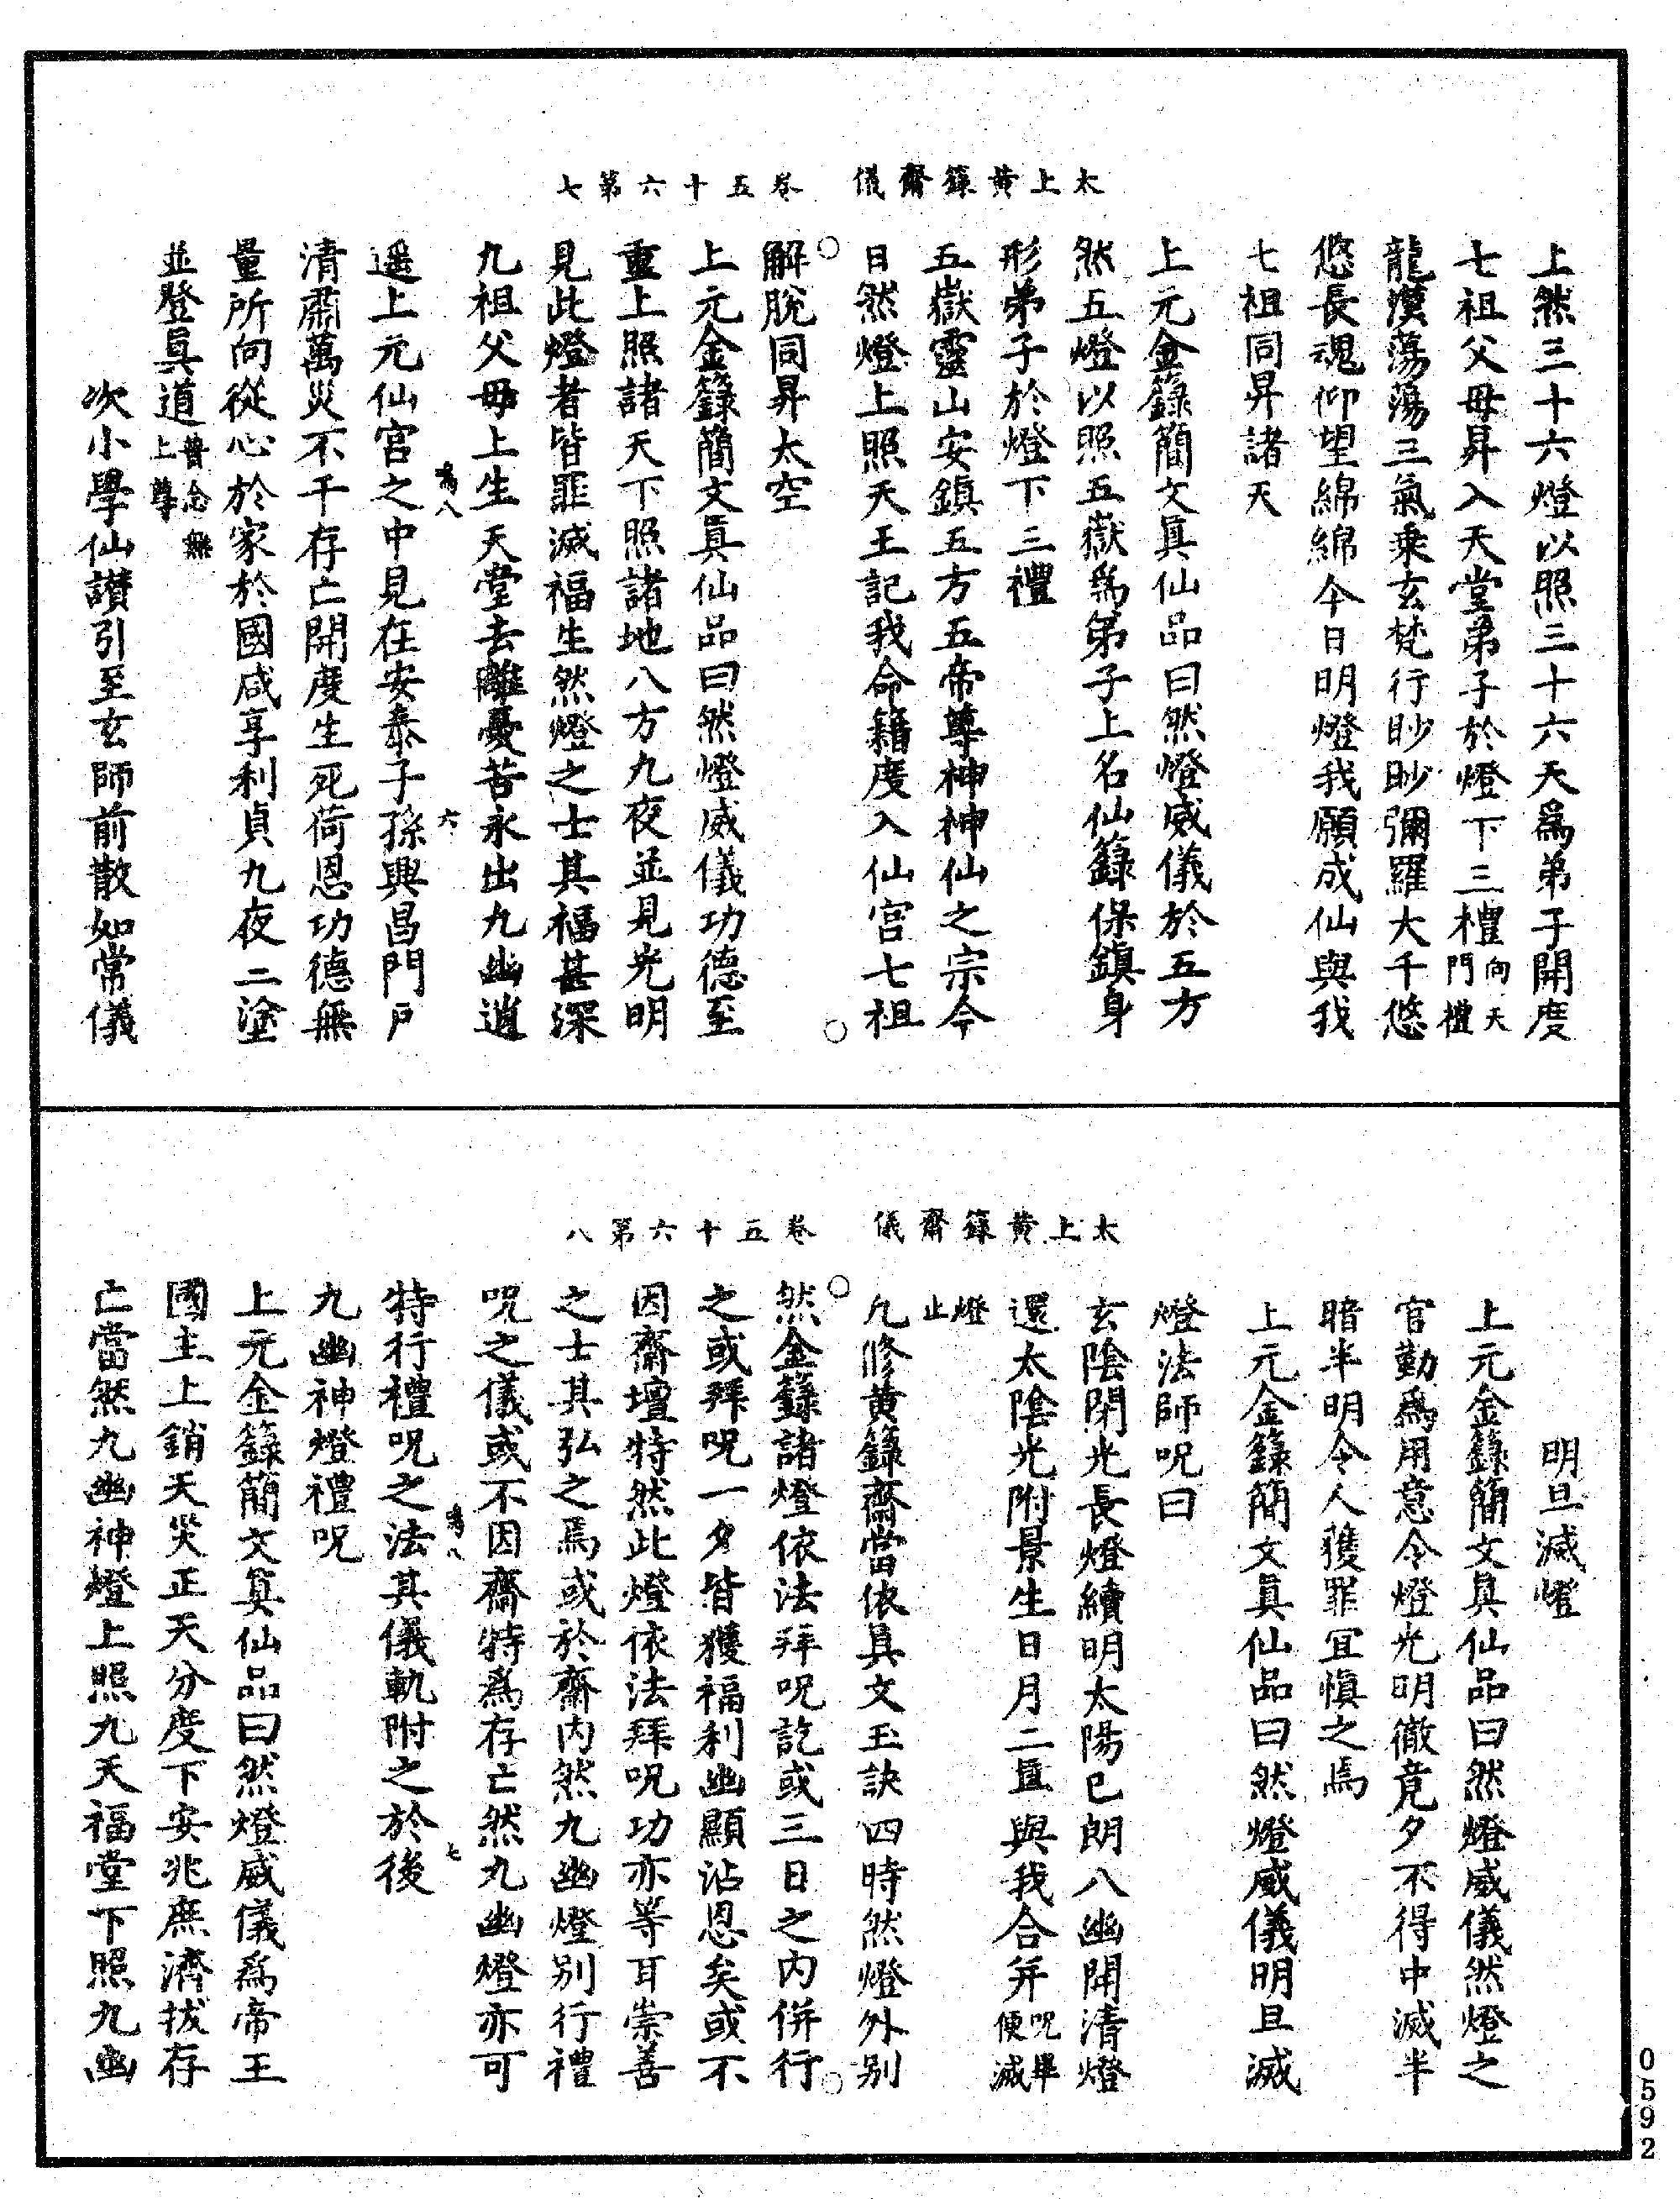 太上黃籙齋儀　卷五十六第七
上然三十六燈以照三十六天爲弟子開度
七祖父母昇入天堂弟子於燈下三禮向天門禮
龍漢蕩蕩三氣乘玄梵行眇眇彌羅大千悠
悠長魂仰望綿綿今日明燈我願成仙與我
七祖同昇諸天
上元金籙簡文眞仙品曰然燈威儀於五方
然五燈以照五嶽爲弟子上名仙籙保鎮身
形弟子於燈下三禮
五嶽靈山安鎮五方五帝尊神神仙之宗今
日然燈上照天王記我命籍度入仙宮七祖
解脫同昇太空
上元金籙簡文眞仙品曰然燈威儀功德至
重上照諸天下照諸地八方九夜並見光明
見此燈者皆罪滅福生然燈之士其福甚深
九祖父母上生天堂去離憂苦永出九幽逍
鳴八　六
遥上元仙宮之中見在安泰子孫興昌門戶
清肅萬災不干存亡開度生死荷恩功德無
量所向從心於家於國咸享利貞九夜二塗
並登眞道普念無上尊
次小學仙讃引至玄師前散如常儀
太上黃籙齋儀　卷五十六第八
明旦滅燈
上元金籙簡文眞仙品曰然燈威儀然燈之
官勤爲用意令燈光明徹竟夕不得中滅半
暗半明令人獲罪冝愼之焉
上元金籙簡文眞仙品曰然燈威儀明旦滅
燈法師呪曰
玄陰閉光長燈續明太陽已朗八幽開清燈
還太陰光附景生日月二直與我合并呪畢便滅
燈止
凡修黃籙齋當依眞文玉訣四時然燈外別
然金籙諸燈依法拜呪訖或三日之內併行
之或拜呪一夕皆獲福利幽顯沾恩矣或不
因齋壇特然此燈依法拜呪功亦等耳崇善
之士其弘之焉或於齋內然九幽燈別行禮
呪之儀或不因齋特爲存亡然九幽燈亦可
鳴八　七
特行禮呪之法其儀軌附之於後
九幽神燈禮呪
上元金籙簡文眞仙品曰然燈威儀爲帝王
國主上銷天災正天分度下安兆庶濟拔存
亡當然九幽神燈上照九天福堂下照九幽
0592